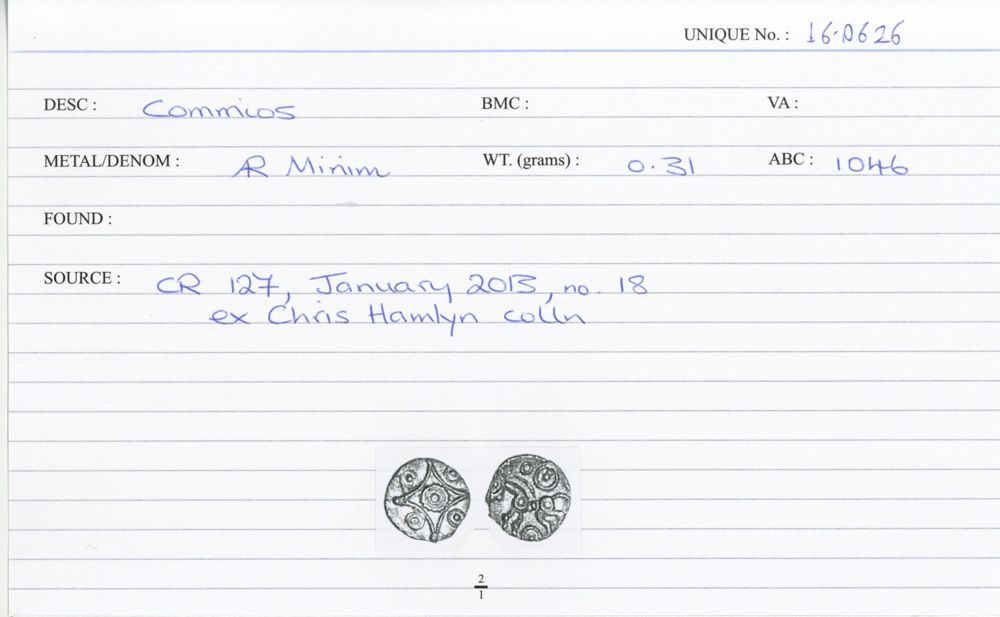 UNIQUE No. : 16.0626
DESC : Commios BMC : VA :
METAL/DENOM : AR Minim WT. (grams) : 0.31 ABC : 1046
FOUND :
SOURCE : CR 127, January 2013, no. 18
ex Chris Hamlyn colln
2
1